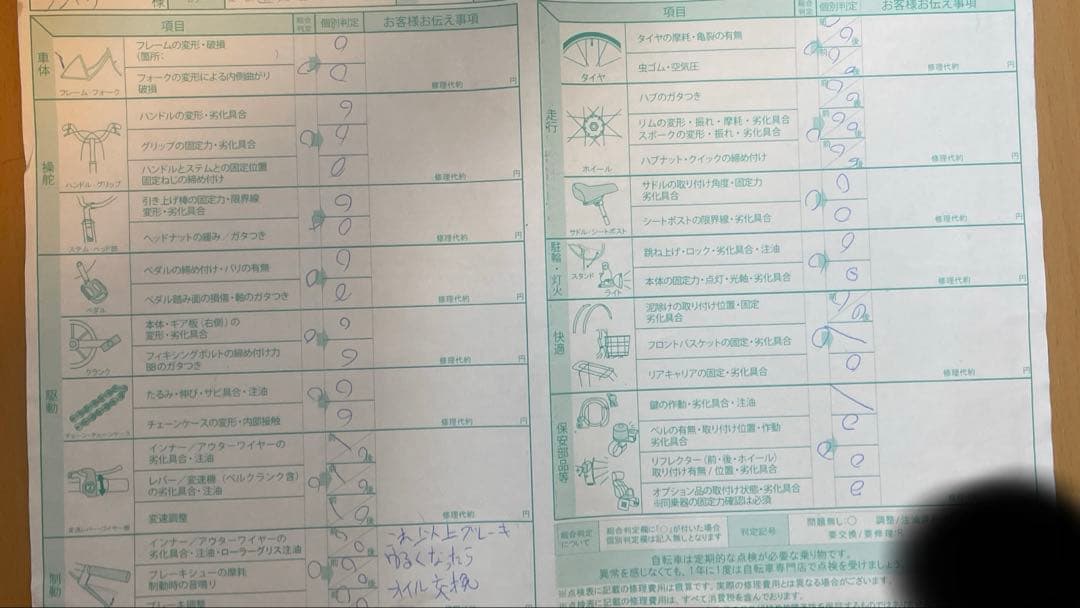 様
項目
総合判定
個別判定
お客様お伝え事項
車体
フレーム・フォーク
フレームの変形・破損
(箇所:
フォークの変形による内側曲がり
破損
修理代約 円
操舵
ハンドル・グリップ
ハンドルの変形・劣化具合
グリップの固定力・劣化具合
ハンドルとステムとの固定位置
固定ねじの締め付け
修理代約 円
ステム・ヘッド部
引き上げ棒の固定力・限界線
変形・劣化具合
ヘッドナットの緩み/ガタつき
修理代約 円
駆動
ペダル
ペダルの締め付け・バリの有無
ペダル踏み面の損傷・軸のガタつき
修理代約 円
クランク
本体・ギア板(右側)の
変形・劣化具合
フィキシングボルトの締め付け力
BBのガタつき
修理代約 円
チェーン・チェーンケース
たるみ・伸び・サビ具合・注油
チェーンケースの変形・内部接触
修理代約 円
変速レバー・ワイヤー類
インナー/アウターワイヤーの
劣化具合・注油
レバー/変速機(ベルクランク含)
の劣化具合・注油
変速調整
修理代約 円
制動
インナー/アウターワイヤーの
劣化具合・注油・ローラーグリス注油
ブレーキシューの摩耗
制動時の音鳴り
ブレーキ調整
これ以上ブレーキ
ゆるくなったら
オイル交換
項目
総合判定
個別判定
お客様お伝え事項
走行
タイヤ
タイヤの摩耗・亀裂の有無
虫ゴム・空気圧
修理代約 円
ホイール
ハブのガタつき
リムの変形・振れ・摩耗・劣化具合
スポークの変形・振れ・劣化具合
ハブナット・クイックの締め付け
修理代約 円
サドル・シートポスト
サドルの取り付け角度・固定力
劣化具合
シートポストの限界線・劣化具合
修理代約 円
駐輪・灯火
スタンド
ライト
跳ね上げ・ロック・劣化具合・注油
本体の固定力・点灯・光軸・劣化具合
修理代約 円
快適
泥除けの取り付け位置・固定
劣化具合
フロントバスケットの固定・劣化具合
リアキャリアの固定・劣化具合
修理代約 円
保安部品等
鍵の作動・劣化具合・注油
ベルの有無・取り付け位置・作動
劣化具合
リフレクター(前・後・ホイール)
取り付け有無/位置・劣化具合
オプション品の取付け状態・劣化具合
※同乗器の固定力確認は必須
総合判定
について
総合判定欄に「○」が付いた場合
個別判定欄は記入無しとなります
判定記号
問題無し:○
調整/注油
要交換/要修理
自転車は定期的な点検が必要な乗り物です。
異常を感じなくても、1年に1度は自転車専門店で点検を受けましょう
※点検表に記載の修理費用は概算です。実際の修理費用とは異なる場合がございます。
※点検表に記載の修理費用は、すべて消費税を含んでおります。